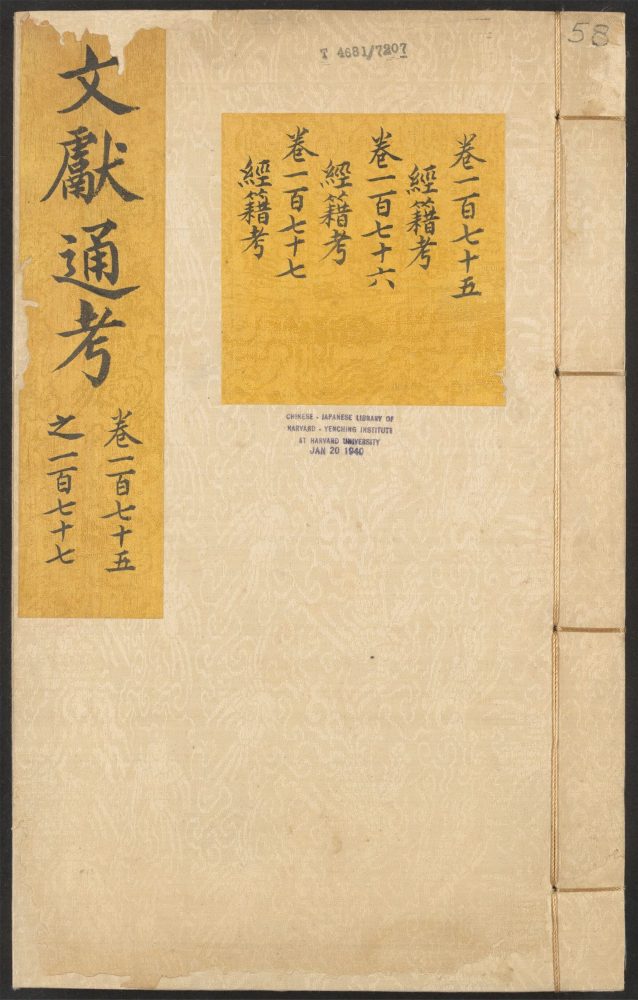 58
T 4681/7207
卷一百七十五
經籍考
卷一百七十六
經籍考
卷一百七十七
經籍考
文獻通考
卷一百七十五
之一百七十七
CHINESE - JAPANESE LIBRARY OF
HARVARD - YENCHING INSTITUTE
AT HARVARD UNIVERSITY
JAN 20 1940